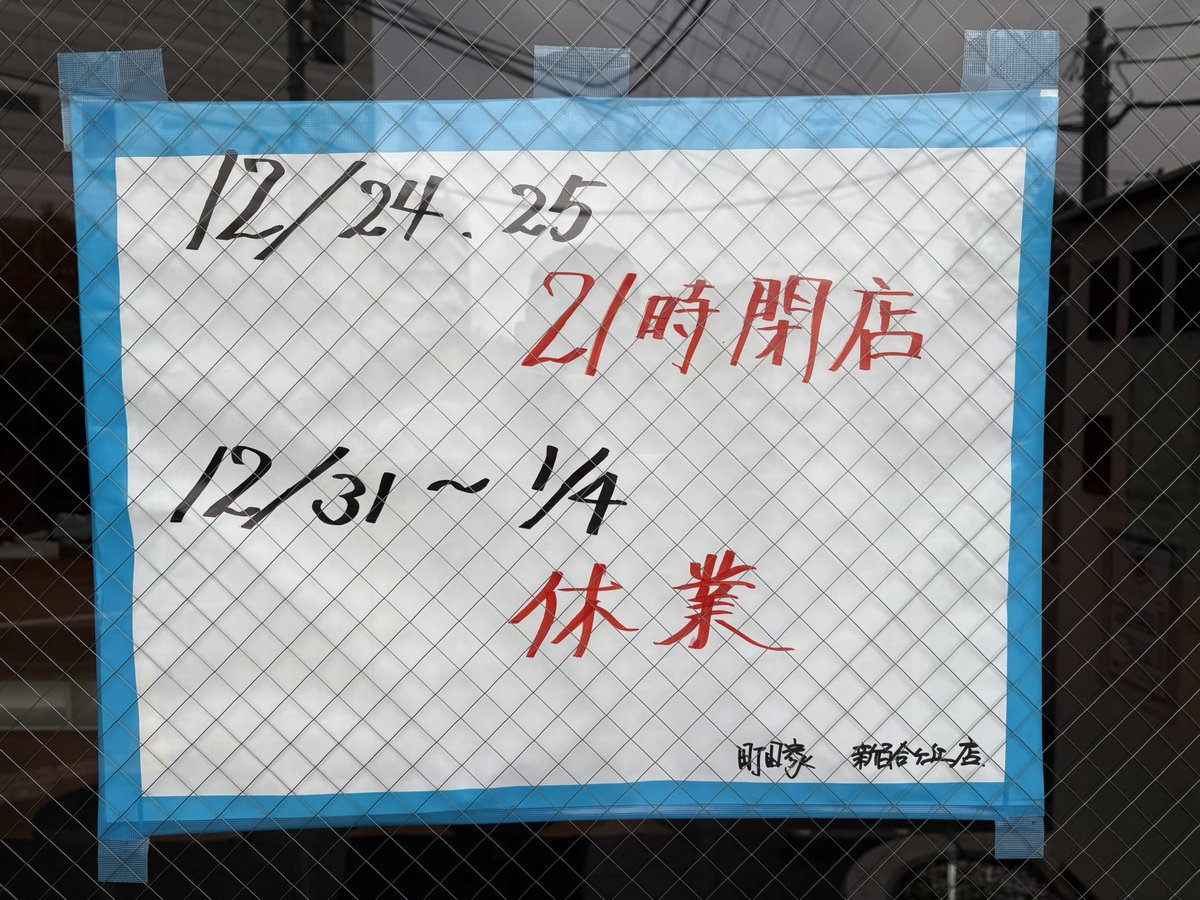 12/24.25
21時閉店
12/31～1/4
休業
町田家 新百合ヶ丘店